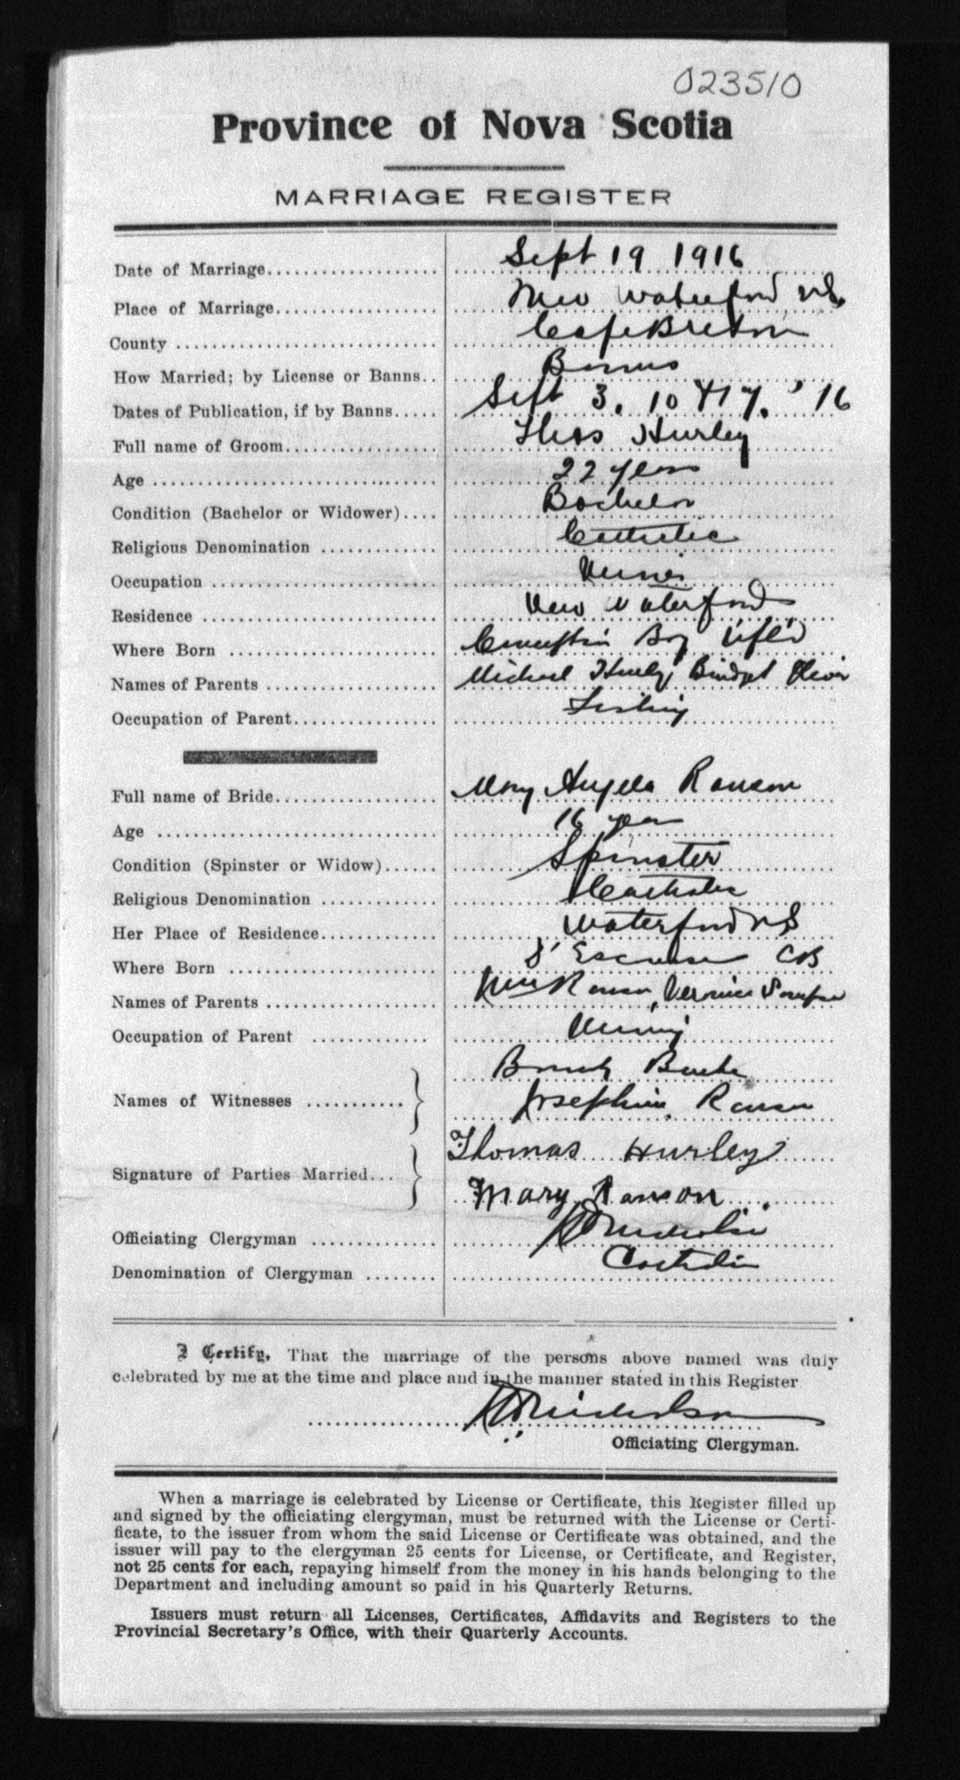 023510
Province of Nova Scotia
MARRIAGE REGISTER
Date of Marriage Sept 19 1916
Place of Marriage New Waterford N.S.
County Cape Breton
How Married; by License or Banns Banns
Dates of Publication, if by Banns Sept 3, 10 & 17, '16
Full name of Groom Thos Hurley
Age 22 years
Condition (Bachelor or Widower) Bachelor
Religious Denomination Catholic
Occupation Miner
Residence New Waterford
Where Born Conception Bay Nfld
Names of Parents Michael Hurley Bridget
Occupation of Parent Fishing
Full name of Bride Mary Angela Ranson
Age 16 years
Condition (Spinster or Widow) Spinster
Religious Denomination Catholic
Her Place of Residence Waterford N S
Where Born D'Escousse CB
Names of Parents Wm Ranson, Veronica
Occupation of Parent Mining
Names of Witnesses Burke
Josephine Ranson
Signature of Parties Married Thomas Hurley
Mary Ranson
Officiating Clergyman
Denomination of Clergyman Catholic
I Certify, That the marriage of the persons above named was duly
celebrated by me at the time and place and in the manner stated in this Register
Officiating Clergyman.
When a marriage is celebrated by License or Certificate, this Register filled up
and signed by the officiating clergyman, must be returned with the License or Certi-
ficate, to the issuer from whom the said License or Certificate was obtained, and the
issuer will pay to the clergyman 25 cents for License, or Certificate, and Register,
not 25 cents for each, repaying himself from the money in his hands belonging to the
Department and including amount so paid in his Quarterly Returns.
Issuers must return all Licenses, Certificates, Affidavits and Registers to the
Provincial Secretary's Office, with their Quarterly Accounts.